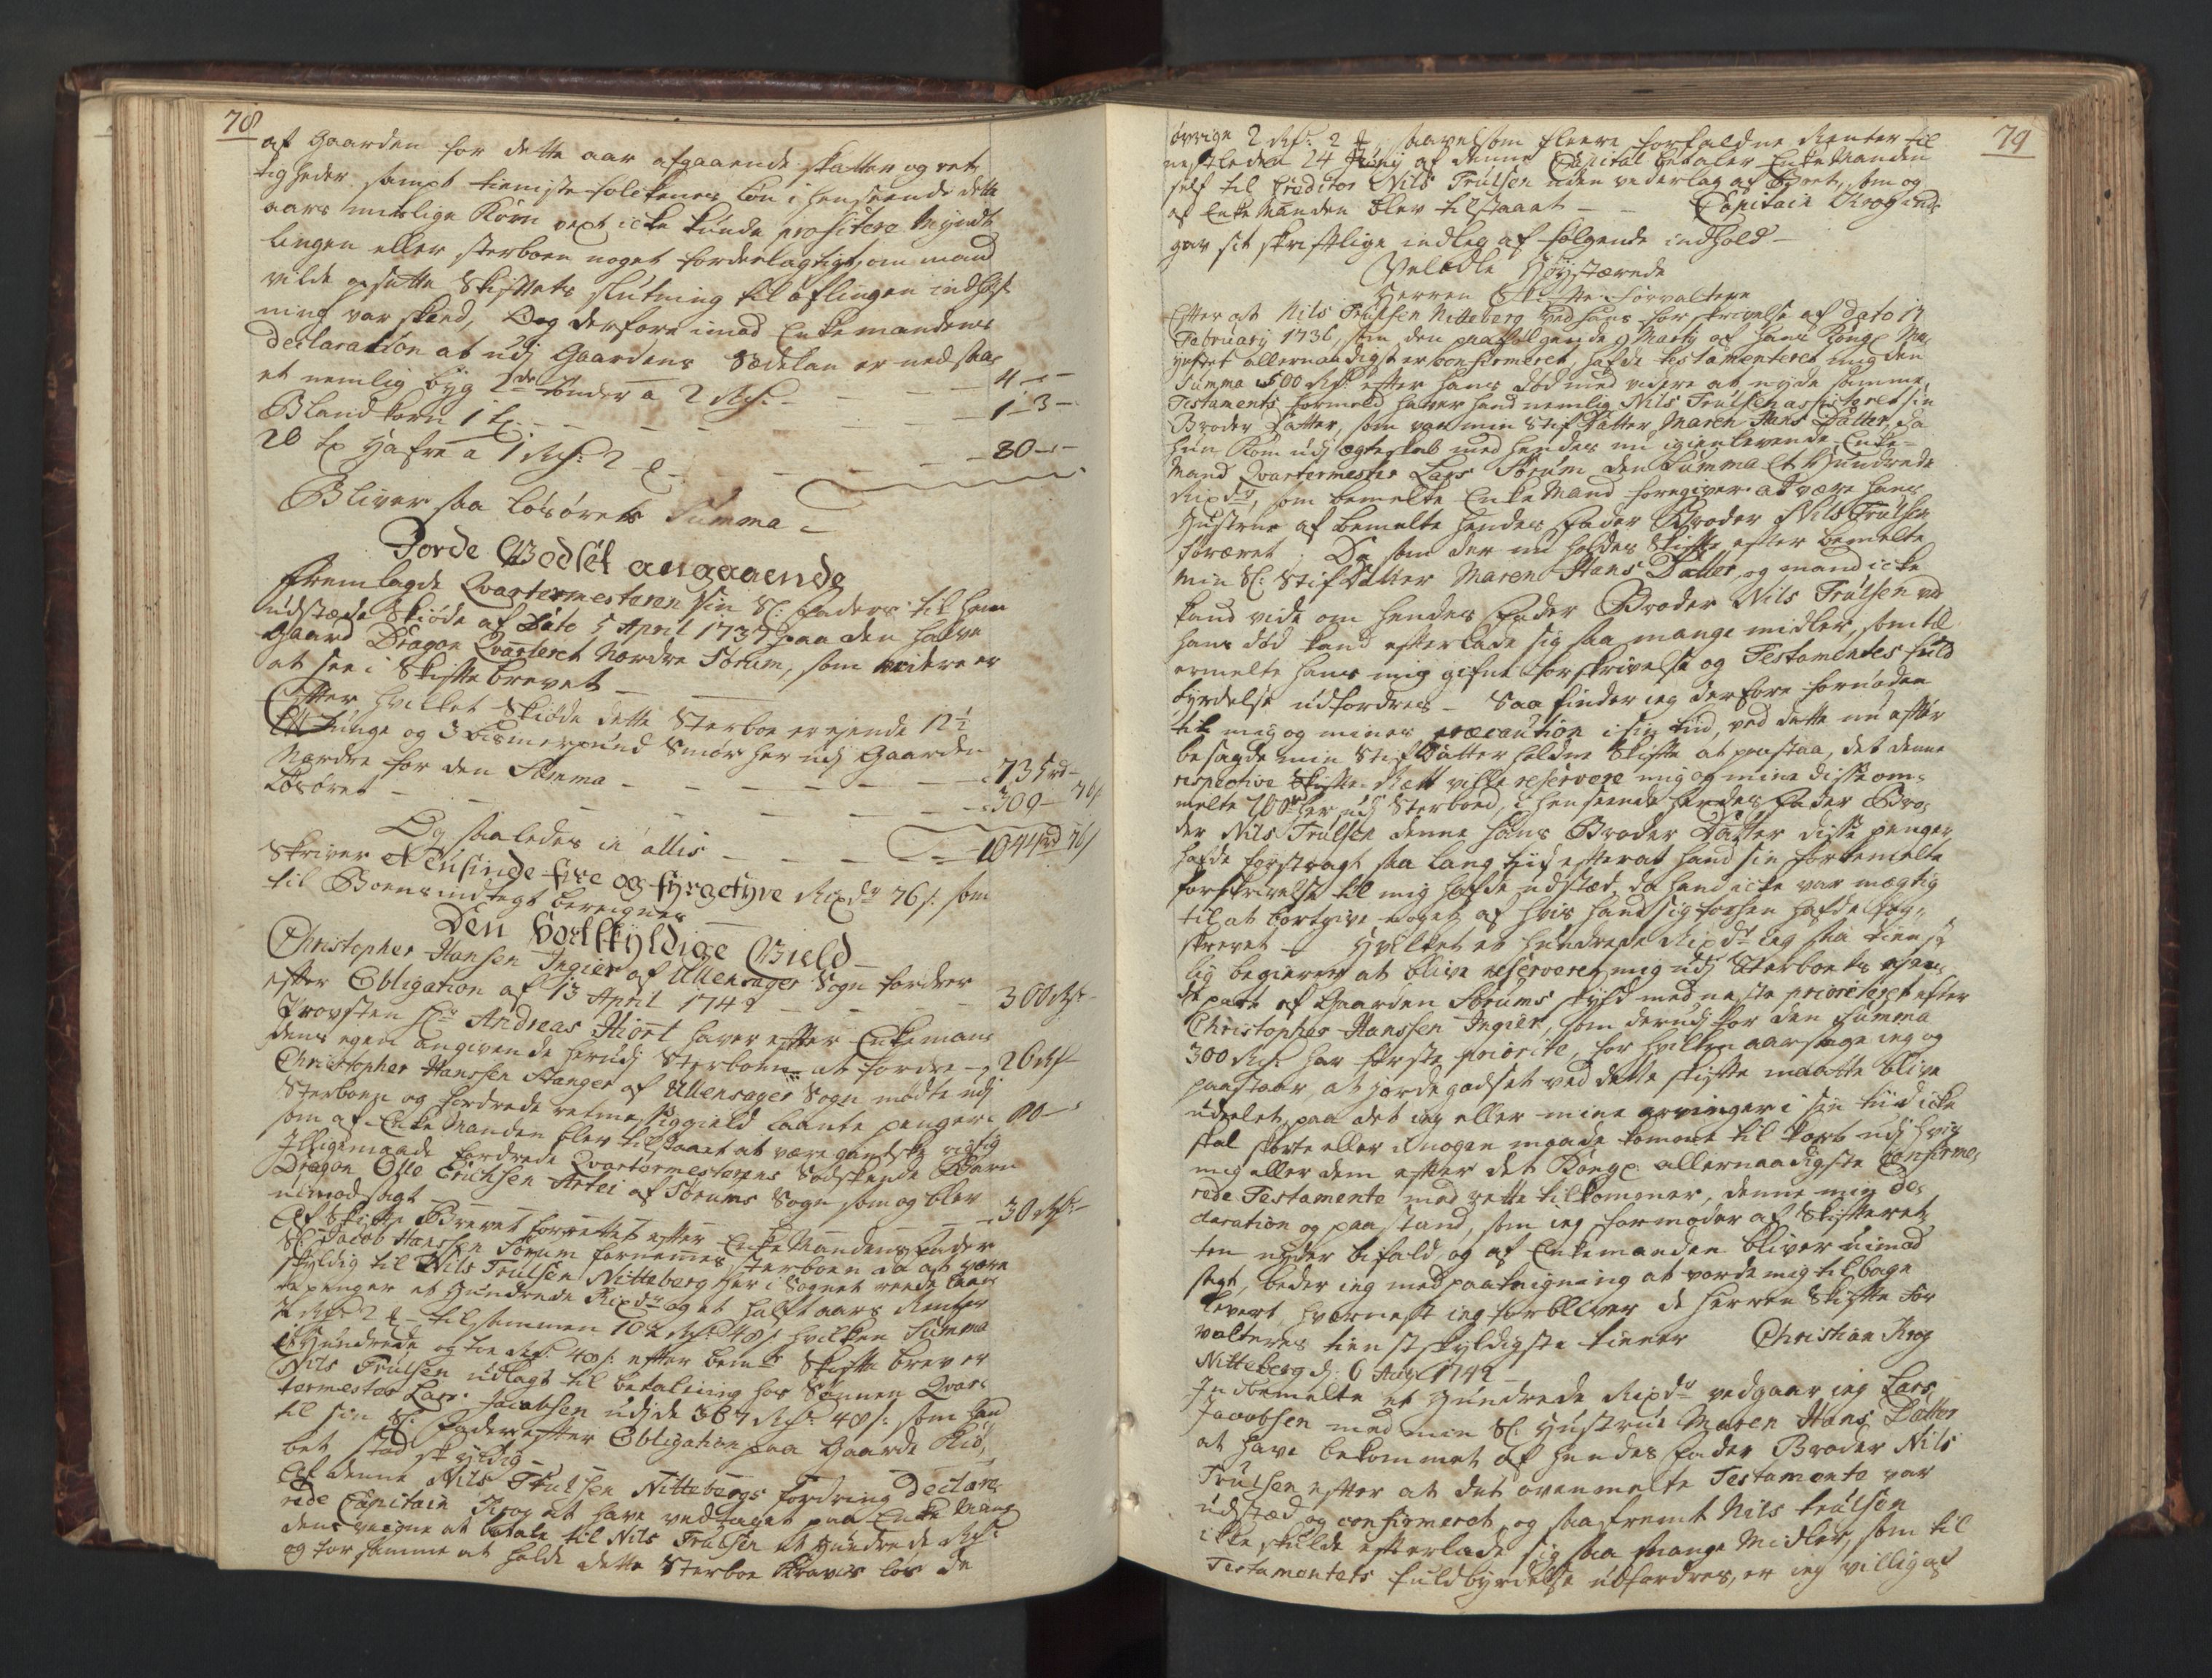 78
af Gaarden for dette aar afgaaende skatter og ret
tigheder sampt tieniste folckenes løn i henseende dette
aars misslige Korn vext icke kunde profitere Myndt
lingen eller sterboen noget forderlagtigt, om mand
vilde opsætte Skiftets slutning til aflingen indhøst
ning var skeed, Dog derfore imod Enkemandens
Declaration at udj Gaardens Sædelan er ned saa
et nemlig byg 2de tønder a 2 Rdr. - - 4 - -
Bland korn 1 tø. - - - - 1 - 3 -
20 tø Hafre a 1 Rdr. 2 - - - 30 - -
Bliver saa løsørets Summa -
Jorde Godset angaaende
Fremlagde Qvartermesteren sin Sl: Faders til ham
udstædde Skiøde af Dato 5 April 1737 paa den halve
Gaard Dragon Qvarteret Nordre Sørum, som videre er
at see i Skiftebrevet -
Efter hvilket Skiøde dette Sterboe er ejende 12½
Lll Tunge og 3 bismerpund Smør her udj Gaarden
Nordre for den Summa - - - 735 rd -
Løsøret - - - - 309 - 76 s
Og saaledes in allis - - - 1044 rd 76 s
Skriver Et tusinde fire og fyrgetyve Rixdr 76 s: som
til Boens indtegt beregnes -
Den bortskyldige Gield -
Christopher Hansen Ingier af Ullensager Sogn fordrer
efter Obligation af 13 April 1742 - - - 300 Rdr -
Provsten Hr Andreas Hiort haver efter Enkeman
dens egen angivende herudj Sterboen at fordre - 20 Rdr
Christopher Hanssen Stanger af Ullensager Sogn mødte udj
Sterboen og fordrede retmessig gield laante penger 80 -
som af Enke Manden blev tilstaaet at være gandske rigtig
Jlligemaade fordrede Qvartermesterens Sødskende Barn
Dragon Ole Erichsen Artei af Sørums Sogn som og blev
uimodsagt - - - - - 30 Rdr -
Af Skifte Brevet forrettet efter Enke Mandens Fader
Sl: Jacob Hanssen Sørum fornemmes Sterboen da at være
skyldig til Nils Trulsen Nitteberg her i Sognet reede laan
te penger et Hundrede Rixdr og et half aars Renter
2 Rdr 2 - tilsammen 102 Rdr 48 s: hvilken Summa
Et Hundrede og toe Rdr 48 s: efter bemte Skifte brev er
Nils Trulsen udlagt til betalning hos Sønnen Qvar
termester Lars Jacobsen udj de 367 Rdr 48 s: som han
til sin Sl: Fader efter Obligation paa Gaarde Kiø
bet stod skyldig -
Af denne Nils Trulsen Nittebergs fordring Declare
rede Capitain Krog at have vedtaget paa Enke Man
dens vegne at betale til Nils Trulsen et Hundrede Rdr
og for samme at holde dette Sterboe Kravis løs de
79
øvrige 2 Rdr: 2 saavelsom fleere forfaldne Renter til
nestleden 24 Juny af denne Capital betaler Enke Manden
self til Creditor Nils Trulsen uden vederlag af Boet, som og
af Enke Manden blev tilstaaet - - Capitain Krog ind
gav sit skriftlige indleg af følgende indhold -
Velædle Høystærede
Herren Skifte Forvaltere
Efter at Nils Trulsen Nitteberg ved hans forskrivelse af Dato 17
February 1736, som den paafølgende 9 Marty af Hans Kongl. Ma
yestet allernaadigst er confirmeret, hafde testamenteret mig den
Summa 500 Rdr efter hans død med videre at nyde samme,
Testaments formeld haver hand nemlig Nils Trulsen assisteret sin
Broder Datter, som var min Stif Datter Maren Hans Datter, da
hun kom udj ægteskab med hendes nu igienlevende Enke-
Mand Qvartermester Lars Sørum den Summa Et Hundrede
Rixdr, som bemelte Enke Mand foregiver at være hans
Hustrue af bemelte hendes Fader Broder Nils Trulsen
foræret. Da som der nu holdes Skifte efter bemelte
min Sl: Stif Datter Maren Hans Datter, og mand icke
kand vide om hendes Fader Broder Nils Trulsen ved
hans død kand efterlade sig saa mange midler, som til
ermelte hans mig gifne forskrivelse og Testamentes fuld
byrdelse udfordres - Saa finder ieg derfore fornøden
til mig og mines præcaution i sin tiid, ved dette nu efter
besagde min Stif Datter holdne Skifte at paastaa, det denne
respective Skifte Ræt ville reservere mig og mine disse om
melte 100 rd her udj Sterboed, i henseende hendes Fader Bro
der Nils Trulsen denne hans Broder Datter disse penger
hafde forstragt saa lang tiid efterat hand sin forbemelte
forskrivelse til mig hafde udstæd, da hand icke var mægtig
til at bortgive noget af hvis hand sig tofhen hafde for
skrevet - Hvilket et hundrede Rixdr ieg saa tienst
lig begierer at blive reserveret mig udj Sterboets ejen
de part af Gaarden Sørums skyld med neste prioritet efter
Christopher Hanssen Ingier, som derudj for den Summa
300 Rdr har første priorite, for hvilken aarsage ieg og
paastaar, at jordegodset ved dette skifte maatte blive
udeelet, paa det ieg eller mine arvinger i sin tiid icke
skal skorte eller i nogen maade komme til kort udj hvis
mig eller dem efter det Kongl. allernaadigste Confirme
rede Testamente med rette tilkommer, denne min De
claration og paastand, som ieg formoder af Skifteret
ten nyder bifald og af Enkemanden bliver uimod
sagt, beder ieg med paateigning at vorde mig tilbage
levert, hvornest ieg forbliver de Herren Skifte For
valteres tienstskyldigste tienner Christian Krog
Nitteberg d: 6 Aug 1742 -
Indbemelte et Hundrede Rixdr vedgaar jeg Lars
Jacobsen med min Sl: Hustrue Maren Hans Datter
at have bekommet af hendes Fader Broder Nils
Trulsen efter at det ovenmelte Testamente var
udstæd og confirmeret, og saafremt Nils Trulsen
icke skulde efterlade sig saa mange Midler, som til
Testamentets fuldbyrdelse udfordres, er ieg villig at